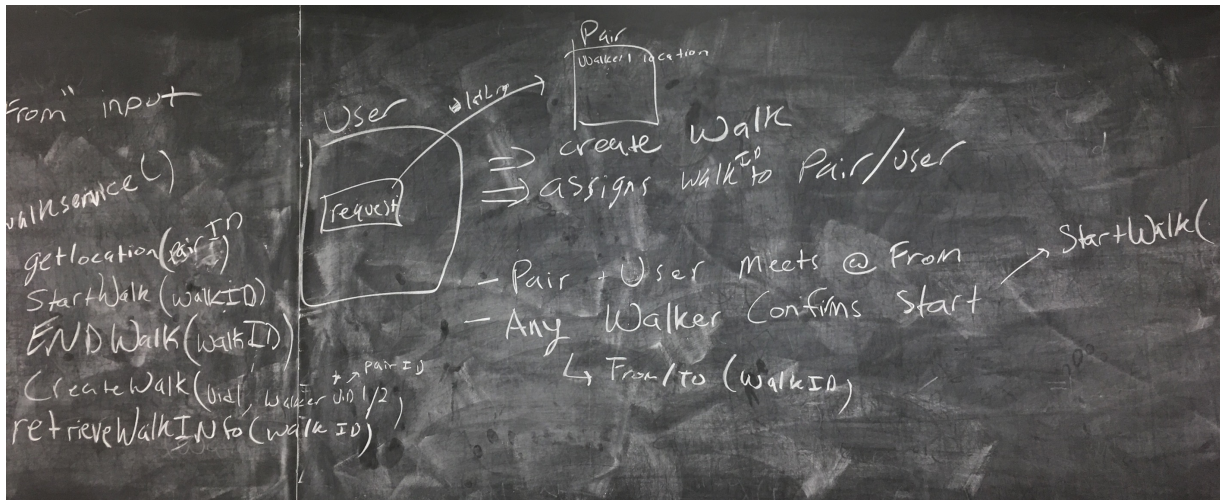 From" input
walkservice()
getlocation(pair ID)
StartWalk(walkID)
ENDWalk(walkID)
CreateWalk(Uid1, Walker UID 1/2)
* → Pair ID
retrieveWalkINfo(walk ID)
User
request
Pair
Walker1 location
⇒ create Walk
⇒ assigns walk ID to Pair/User
- Pair + User Meets @ From
- Any Walker Confirms Start → StartWalk(
↳ From/To (WalkID)